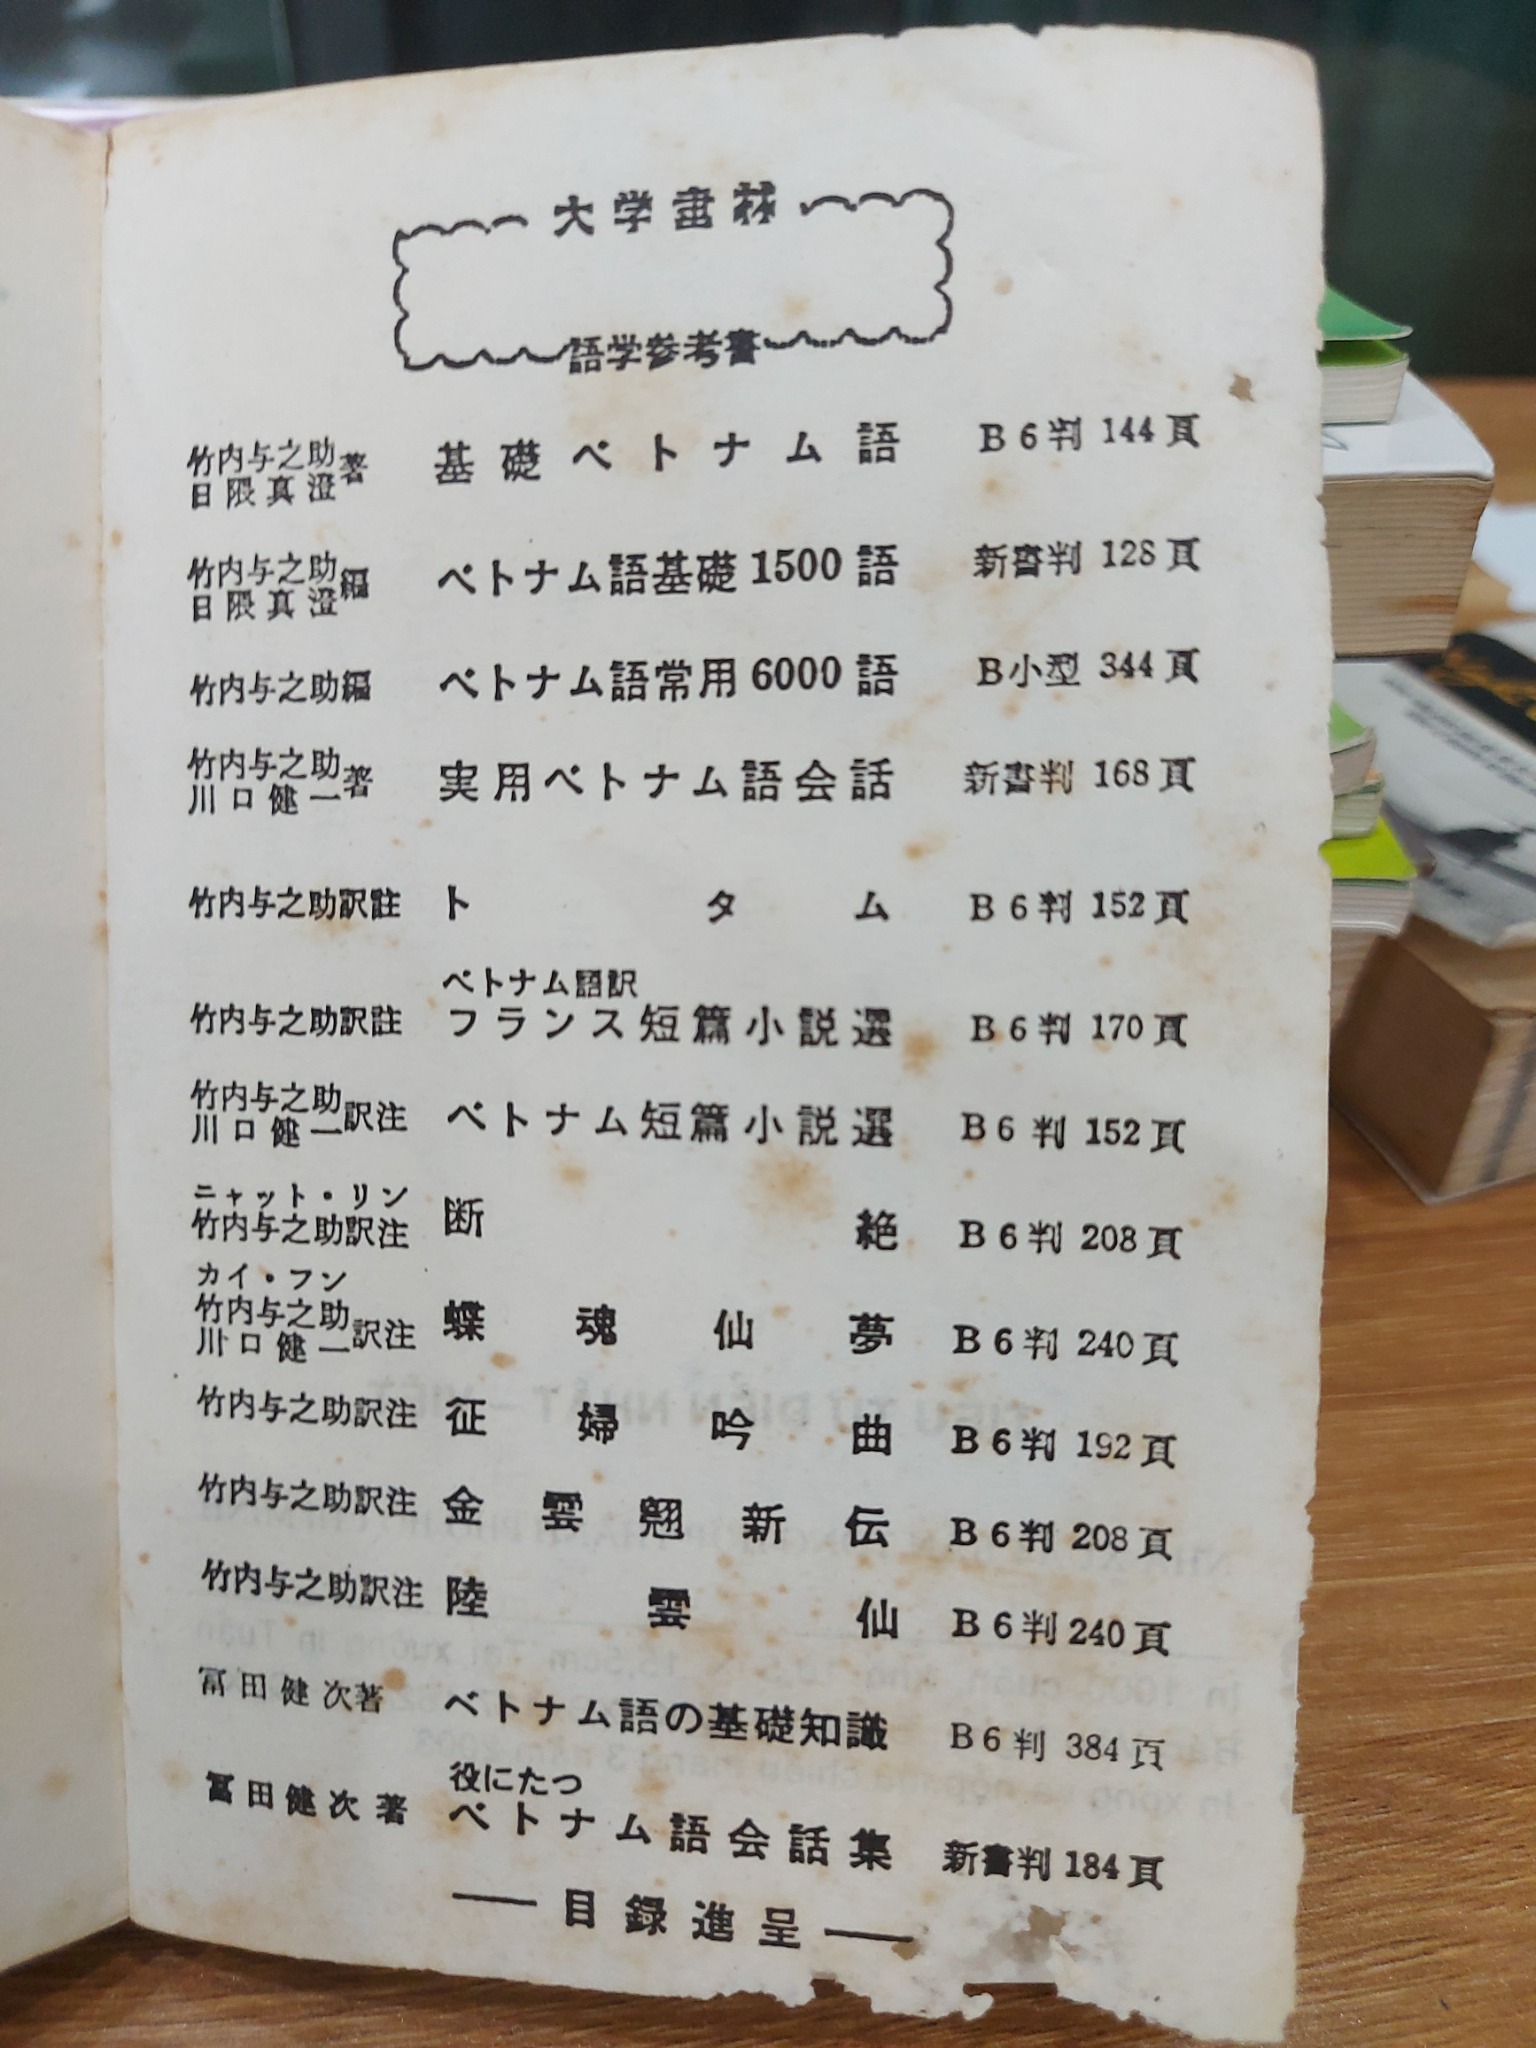 大学書林
語学参考書
竹内与之助 日隈真澄 著 基礎ベトナム語 B6判 144頁
竹内与之助 日隈真澄 編 ベトナム語基礎1500語 新書判 128頁
竹内与之助編 ベトナム語常用6000語 B小型 344頁
竹内与之助 川口健一 著 実用ベトナム語会話 新書判 168頁
竹内与之助訳註 トタム B6判 152頁
ベトナム語訳
竹内与之助訳註 フランス短篇小説選 B6判 170頁
竹内与之助 川口健一 訳注 ベトナム短篇小説選 B6判 152頁
ニャット・リン
竹内与之助訳注 断絶 B6判 208頁
カイ・フン
竹内与之助 川口健一 訳注 蝶魂仙夢 B6判 240頁
竹内与之助訳注 征婦吟曲 B6判 192頁
竹内与之助訳注 金雲翹新伝 B6判 208頁
竹内与之助訳注 陸雲仙 B6判 240頁
冨田健次著 ベトナム語の基礎知識 B6判 384頁
役にたつ
冨田健次著 ベトナム語会話集 新書判 184頁
— 目録進呈 —